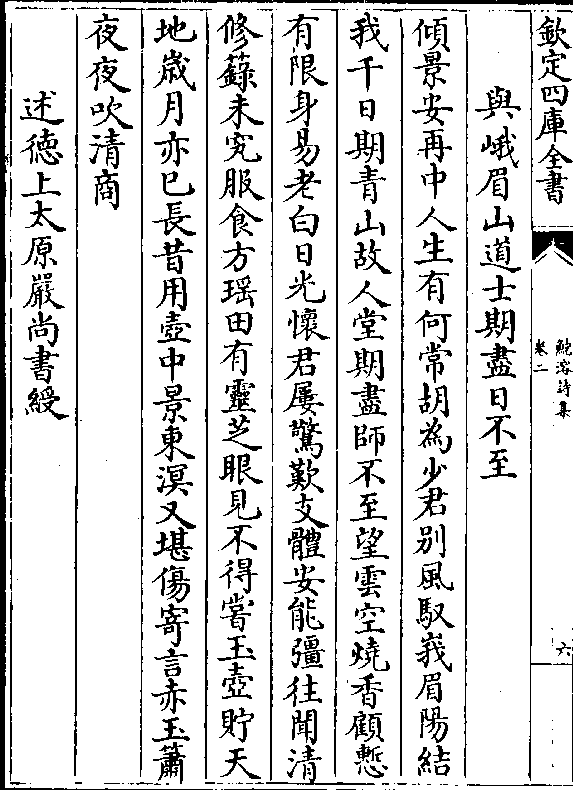 欽定四庫全書
鮑溶詩集
卷二
六
與峨眉山道士期盡日不至
傾景安再中人生有何常胡為少君别風馭峩眉陽結
我千日期青山故人堂期盡師不至望雲空燒香顧慙
有限身易老白日光懷君屢驚歎支體安能彊往聞清
修籙未究服食方瑶田有靈芝眼見不得嘗玉壺貯天
地歲月亦已長昔用壺中景東溟又堪傷寄言赤玉簫
夜夜吹清商
述德上太原嚴尚書綬